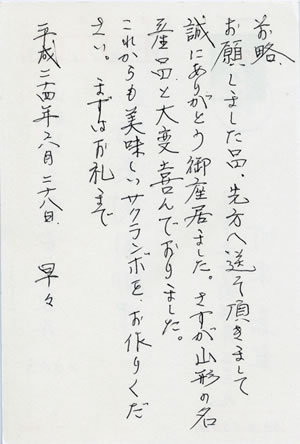 前略
お願しました品、先方へ送て頂きまして
誠にありがとう御座居ました。さすが山形の名
産品と大変喜んでおりました。
これからも美味しいサクランボを、お作りくだ
さい。まずはお礼まで
平成二十四年六月二十八日
早々